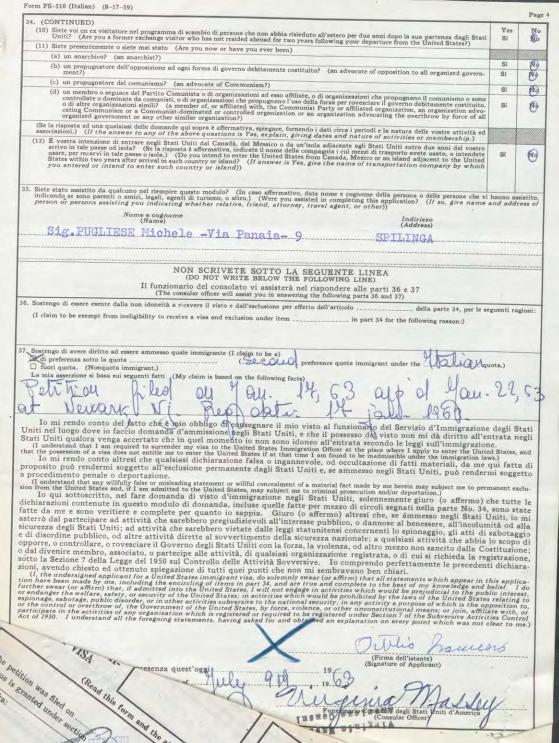 Form FS-510 (Italian) (8-17-59)
Page 4
34. (CONTINUED)
(10) Siete voi un ex visitatore nel programma di scambio di persone che non abbia risieduto all'estero per due anni dopo la sua partenza dagli Stati
Uniti? (Are you a former exchange visitor who has not resided abroad for two years following your departure from the United States?)
Yes No
Si No
(11) Siete presentemente o siete mai stato (Are you now or have you ever been)
(a) un anarchico? (an anarchist?)
Si No
(b) un propugnatore dell'opposizione ad ogni forma di governo debitamente costituito? (an advocate of opposition to all organized govern-
ment?)
Si No
(c) un propugnatore del comunismo? (an advocate of Communism?)
Si No
(d) un membro o seguace del Partito Comunista o di organizzazioni ad esso affiliate, o di organizzazioni che propugnano il comunismo o sono
controllate o dominate da comunisti, o di organizzazioni che propugnano l'uso della forza per rovesciare il governo debitamente costituito,
o di altre organizzazioni simili? (a member of, or affiliated with, the Communist Party or affiliated organization, an organization advo-
cating Communism or a Communist-dominated or controlled organization or an organization advocating the overthrow by force of all
organized government or any other similar organization?)
Si No
(Se la risposta ad una qualsiasi delle domande qui sopra è affermativa, spiegare, fornendo i dati circa i periodi e la natura delle vostre attività ed
associazioni.) (If the answer to any of the above questions is Yes, explain, giving dates and nature of activities or membership.)
(12) È vostra intenzione di entrare negli Stati Uniti dal Canadà, dal Messico o da un'isola adiacente agli Stati Uniti entro due anni dal vostro
arrivo in tale paese od isola? (Se la risposta è affermativa, indicate il nome della compagnia i cui mezzi di trasporto avete usato, o intendete
usare, per recarvi in tale paese o isola.) (Do you intend to enter the United States from Canada, Mexico or an island adjacent to the United
States within two years after arrival in such country or island? (If answer is Yes, give the name of transportation company by which
you entered or intend to enter such country or island))
Si No
35. Siete stato assistito da qualcuno nel riempire questo modulo? (In caso affermativo, date nome e cognome della persona o delle persone che vi hanno assistito,
indicando se sono parenti o amici, legali, agenti di turismo, o altro.) (Were you assisted in completing this application? (If so, give name and address of
person or persons assisting you indicating whether relative, friend, attorney, travel agent, or other))
Nome e cognome
(Name)
Indirizzo
(Address)
Sig.PUGLIESE Michele -Via Panaia- 9 SPILINGA
NON SCRIVETE SOTTO LA SEGUENTE LINEA
(DO NOT WRITE BELOW THE FOLLOWING LINE)
Il funzionario del consolato vi assisterà nel rispondere alle parti 36 e 37
(The consular officer will assist you in answering the following parts 36 and 37)
36. Sostengo di essere esente dalla non idoneità a ricevere il visto e dall'esclusione per effetto dell'articolo della parte 34, per le seguenti ragioni:
(I claim to be exempt from ineligibility to receive a visa and exclusion under item in part 34 for the following reason:)
37. Sostengo di avere diritto ad essere ammesso quale immigrante (I claim to be a)
di preferenza sotto la quota second preference quota immigrant under the Italian quota.)
fuori quota. (Nonquota immigrant.)
La mia asserzione si basa sui seguenti fatti (My claim is based on the following facts)
Petition filed on Jan. 14, 63 app'd Jan. 22, 63
at Newark NJ Reg. date: 14 jan 1963
Io mi rendo conto del fatto che è mio obbligo di consegnare il mio visto al funzionario del Servizio d'Immigrazione degli Stati
Uniti nel luogo dove io faccio domanda d'ammissione negli Stati Uniti, e che il possesso del visto non mi dà diritto all'entrata negli
Stati Uniti qualora venga accertato che in quel momento io non sono idoneo all'entrata secondo le leggi sull'immigrazione.
(I understand that I am required to surrender my visa to the United States Immigration Officer at the place where I apply to enter the United States, and
that the possession of a visa does not entitle me to enter the United States if at that time I am found to be inadmissible under the immigration laws.)
Io mi rendo conto altresì che qualsiasi dichiarazione falsa o ingannevole, od occultazione di fatti materiali, da me qui fatta di
proposito può rendermi soggetto all'esclusione permanente dagli Stati Uniti e, se ammesso negli Stati Uniti, può rendermi soggetto
a procedimento penale o deportazione.
(I understand that any willfully false or misleading statement or willful concealment of a material fact made by me herein may subject me to permanent exclu-
sion from the United States and, if I am admitted to the United States, may subject me to criminal prosecution and/or deportation.)
Io qui sottoscritto, nel fare domanda di visto d'immigrazione negli Stati Uniti, solennemente giuro (o affermo) che tutte le
dichiarazioni contenute in questo modulo di domanda, incluse quelle fatte per mezzo di circoli segnati nella parte No. 34, sono state
fatte da me e sono veritiere e complete per quanto io sappia. Giuro (o affermo) altresì che, se ammesso negli Stati Uniti, io mi
asterrò dal partecipare ad attività che sarebbero pregiudizievoli all'interesse pubblico, o dannose al benessere, all'incolumità od alla
sicurezza degli Stati Uniti; ad attività che sarebbero vietate dalle leggi statunitensi concernenti lo spionaggio, gli atti di sabotaggio
e di disordine pubblico, od altre attività dirette al sovvertimento della sicurezza nazionale; a qualsiasi attività che abbia lo scopo di
opporre, o controllare, o rovesciare il Governo degli Stati Uniti con la forza, la violenza, od altro mezzo non sancito dalla Costituzione;
o dal divenire membro, associato, o partecipe alle attività, di qualsiasi organizzazione registrata, o di cui si richieda la registrazione,
sotto la Sezione 7 della Legge del 1950 sul Controllo delle Attività Sovversive. Io comprendo perfettamente le precedenti dichiara-
zioni, avendo chiesto ed ottenuto spiegazione di tutti quei punti che non mi sembravano ben chiari.
(I, the undersigned applicant for a United States immigrant visa, do solemnly swear (or affirm) that all statements which appear in this applica-
tion have been made by me, including the encircling of items in part 34, and are true and complete to the best of my knowledge and belief. I do
further swear (or affirm) that, if admitted into the United States, I will not engage in activities which would be prejudicial to the public interest,
or endanger the welfare, safety, or security of the United States; in activities which would be prohibited by the laws of the United States relating to
espionage, sabotage, public disorder, or in other activities subversive to the national security; in any activity a purpose of which is the opposition to,
or the control or overthrow of, the Government of the United States, by force, violence, or other unconstitutional means; or join, affiliate with, or
participate in the activities of any organization which is registered or required to be registered under Section 7 of the Subversive Activities Control
Act of 1950. I understand all the foregoing statements, having asked for and obtained an explanation on every point which was not clear to me.)
X
(Firma dell'istante)
(Signature of Applicant)
presenza quest'oggi July 9th 1963
Virginia Massey
degli Stati Uniti d'America
(Consular Officer)
VISA
(Read this form and the
he petition was filed on
us is granted under section